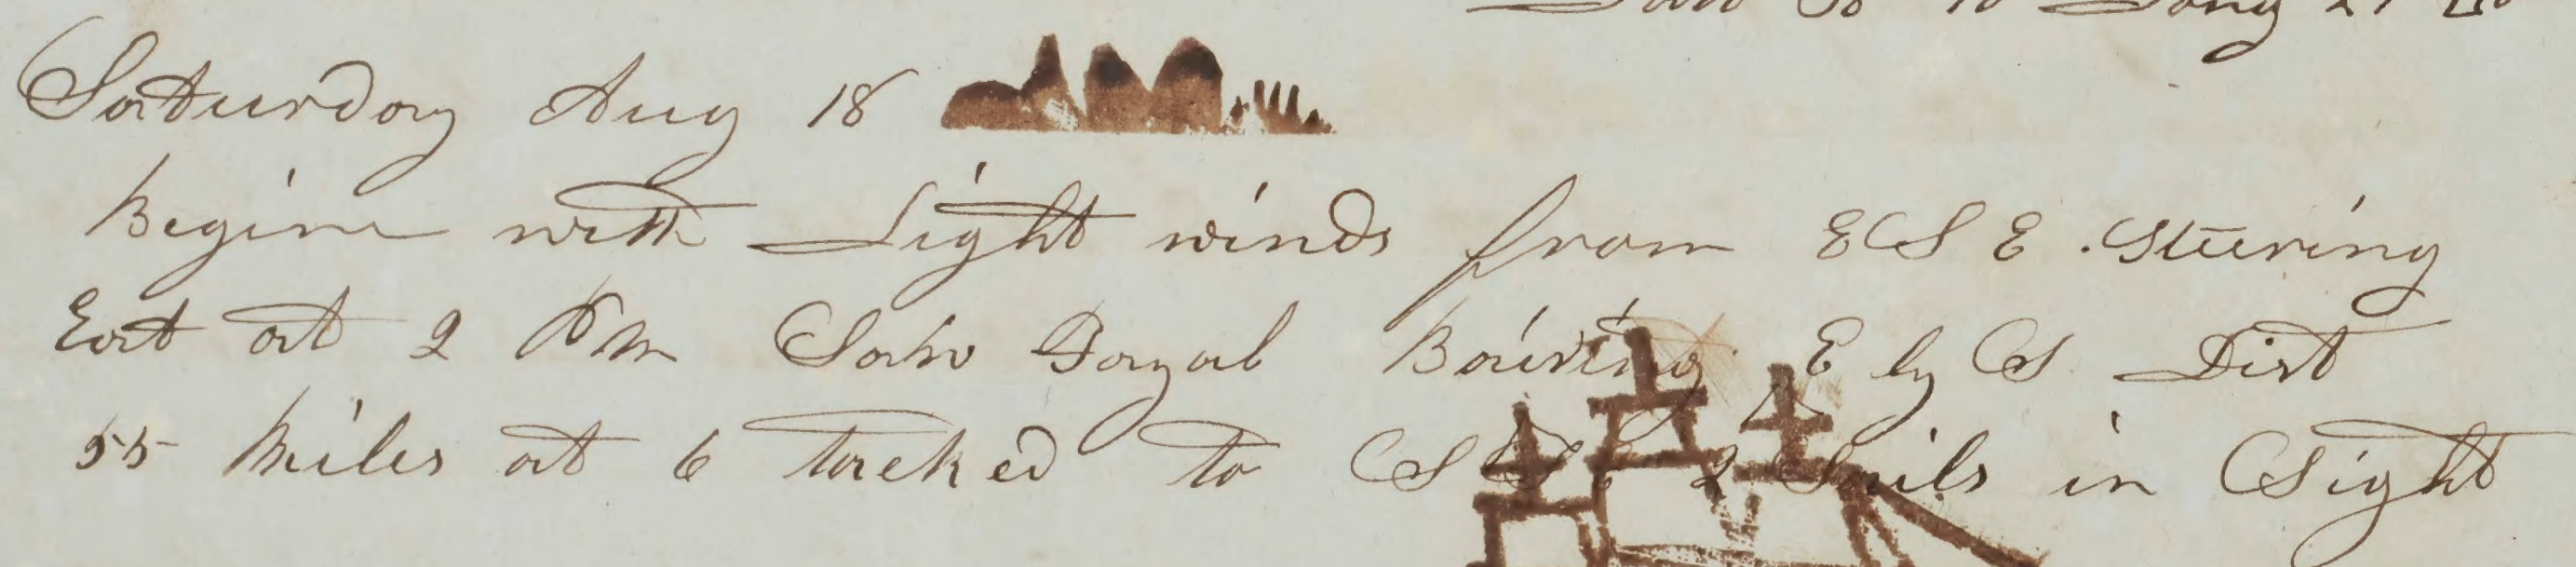 Saturday Aug 18
Begins with Light winds from E S E . Steering
East at 2 P M Saw Fayal Baring E by S Dist
55 Miles at 6 tacked to S S E 2 Sails in Sight